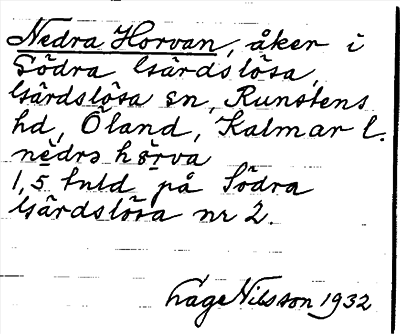 Nedra Horvan, åker i
Södra Gärdslösa,
Gärdslösa sn, Runstens
hd, Öland, Kalmar l.
nèdrə hö̀rva
1,5 tnld på Södra
Gärdslösa nr 2.
Åage Nilsson 1932